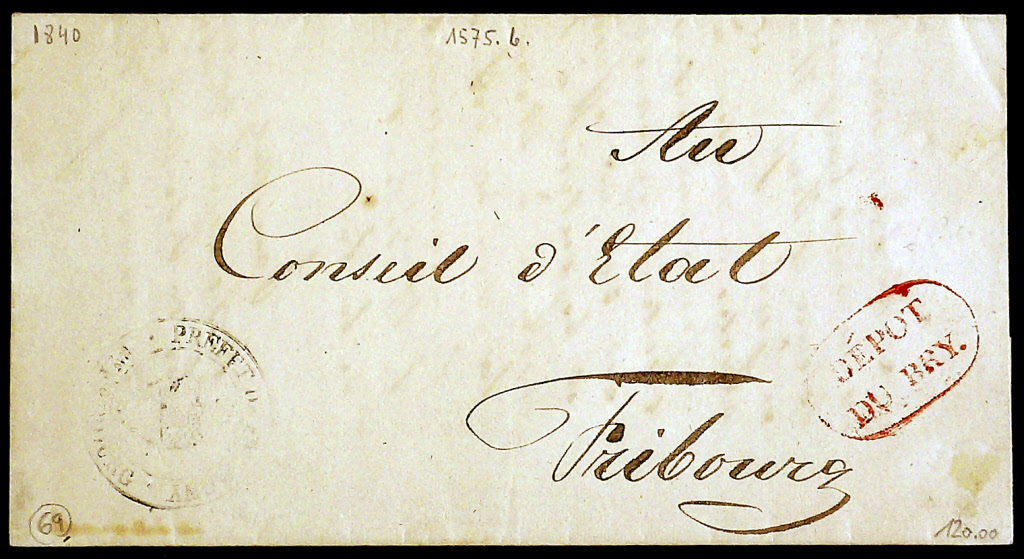 1840
1575. b.
Au
Conseil d'Etat
Fribourg
DÉPOT
DU BRY.
69
120.00